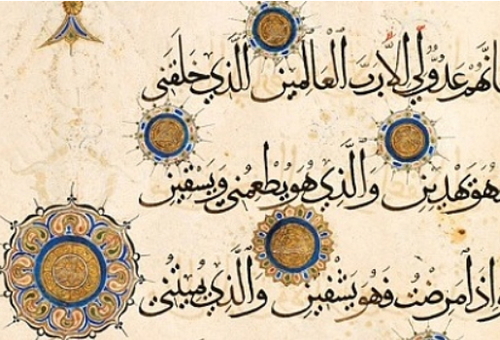 فانهم عدو لي الا رب العالمين الذي خلقني
فهو يهدين والذي هو يطعمني ويسقين
واذا مرضت فهو يشفين والذي يميتني